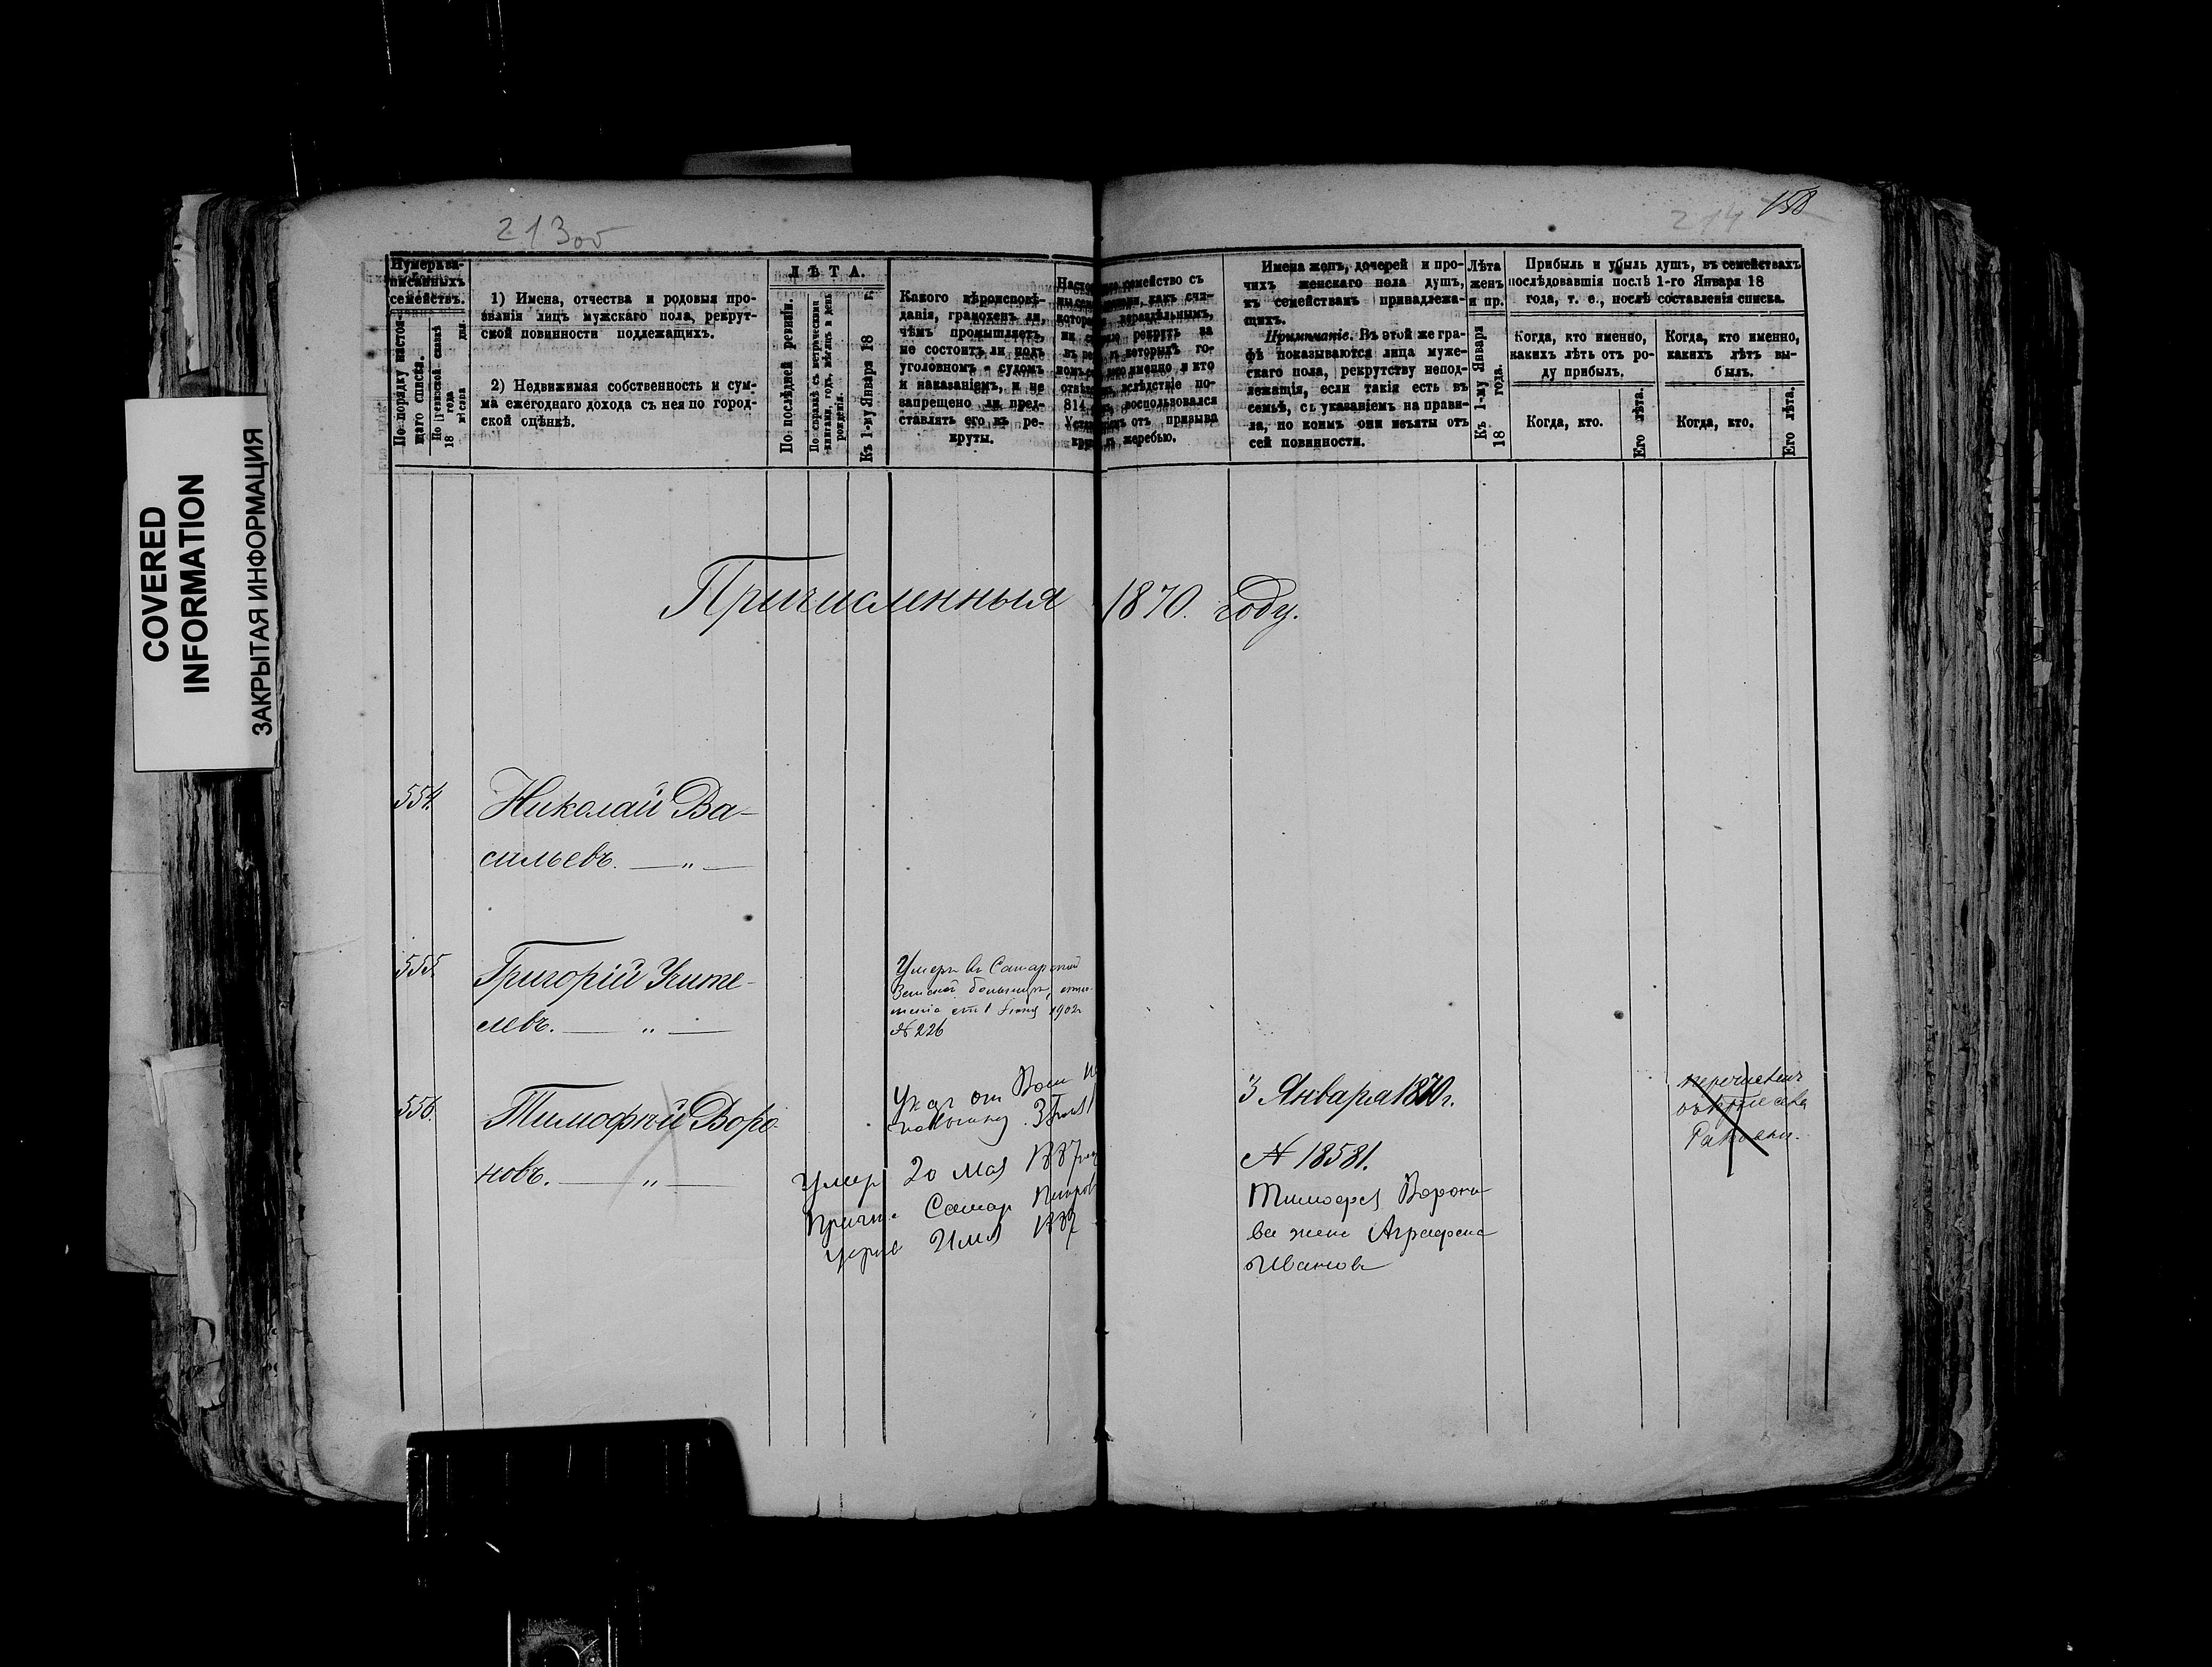 COVERED
INFORMATION
ЗАКРЫТАЯ ИНФОРМАЦИЯ
213об
214
158
Нумера за-
писанныхъ
семействъ.
По порядку настоя-
щаго списка.
По ревизской сказкѣ
18 года
мѣсяца дня.
1) Имена, отчества и родовыя про-
званія лицъ мужскаго пола, рекрут-
ской повинности подлежащихъ.
2) Недвижимая собственность и сум-
ма ежегоднаго дохода съ нея по город-
ской оцѣнкѣ.
ЛѢТА.
По послѣдней ревизіи.
По справкѣ съ метрическими
книгами, годъ, мѣсяцъ и день
рожденія.
Къ 1-му Января 18 г.
Какого вѣроисповѣ-
данія, грамотенъ ли,
чѣмъ промышляетъ,
не состоитъ ли подъ
уголовномъ судомъ
и наказаніемъ, и не
запрещено ли пред-
ставлять его въ ре-
круты.
семейство съ
какъ счи-
нераздѣльнымъ,
рекрутъ за
которыхъ го-
именно и кто
вслѣдствіе по-
814 воспользовался
отъ призыва
жеребью.
Имена женъ, дочерей и про-
чихъ женскаго пола душъ,
къ семействамъ принадлежа-
щихъ.
Примѣчаніе. Въ этой же гра-
фѣ показываются лица муже-
скаго пола, рекрутству непод-
лежащія, если такія есть въ
семьѣ, съ указаніемъ на прави-
ла, по коимъ они изъяты отъ
сей повинности.
Лѣта
женъ
и пр.
Къ 1-му Января
18 года.
Прибыль и убыль душъ, въ семействахъ
послѣдовавшія послѣ 1-го Января 18
года, т. е., послѣ составленія списка.
Когда, кто именно,
какихъ лѣтъ отъ ро-
ду прибылъ.
Когда, кто именно,
какихъ лѣтъ вы-
былъ.
Когда, кто.
Его лѣта.
Когда, кто.
Его лѣта.
Причисленныя 1870. году.
554. Николай Ва-
сильевъ. — „ —
555. Григорій Ките-
левъ. — „ —
Умеръ въ Самарской
Земской больницѣ,
1902
№ 226
556. Тимофѣй Воро-
новъ. — „ —
Указ от
Умер 20 мая 1887
Самар
21 мая 1887
3 Января 1870 г.
№ 18581.
Тимофея Вороно-
ва жена Аграфена
Иванова
перечислен